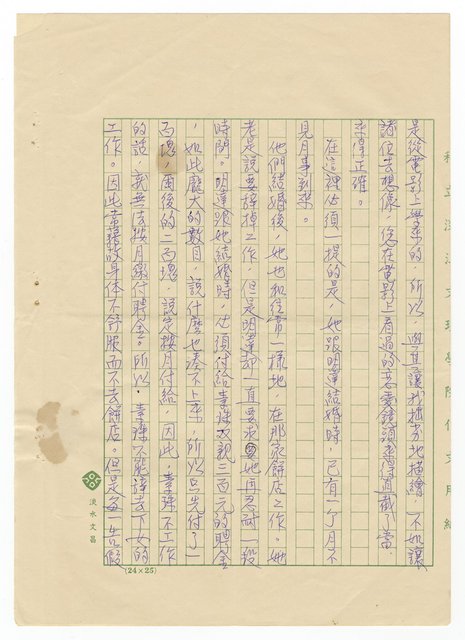 是從電影上學來的，所以，與其讓我拙劣地描繪，不如讓
諸位去想像，您在電影上看過的恋愛鏡頭來得直截了當，
來得正確。
在這裡必須一提的是，她跟明達結婚時，已有一个月不
見月事到來。
他們結婚後，她也和往常一樣地，在那家餅店工作。她
老是說要辞掉工作，但是明達却一直要求她再忍耐一段
時間。明達跟她結婚時，必須付給素珠父親三百元的聘金
，如此龐大的數目，說什麼也湊不上來，所以只先付了一
百塊，而後的二百塊，說定按月付給，因此，素珠不工作
的話，就無法按月繳付聘金。所以，素珠不能辞去下女的
工作。因此常藉故身体不舒服而不去餅店。但是每一告假
私立淡江文理學院作文用紙
淡水文昌
(24×25)